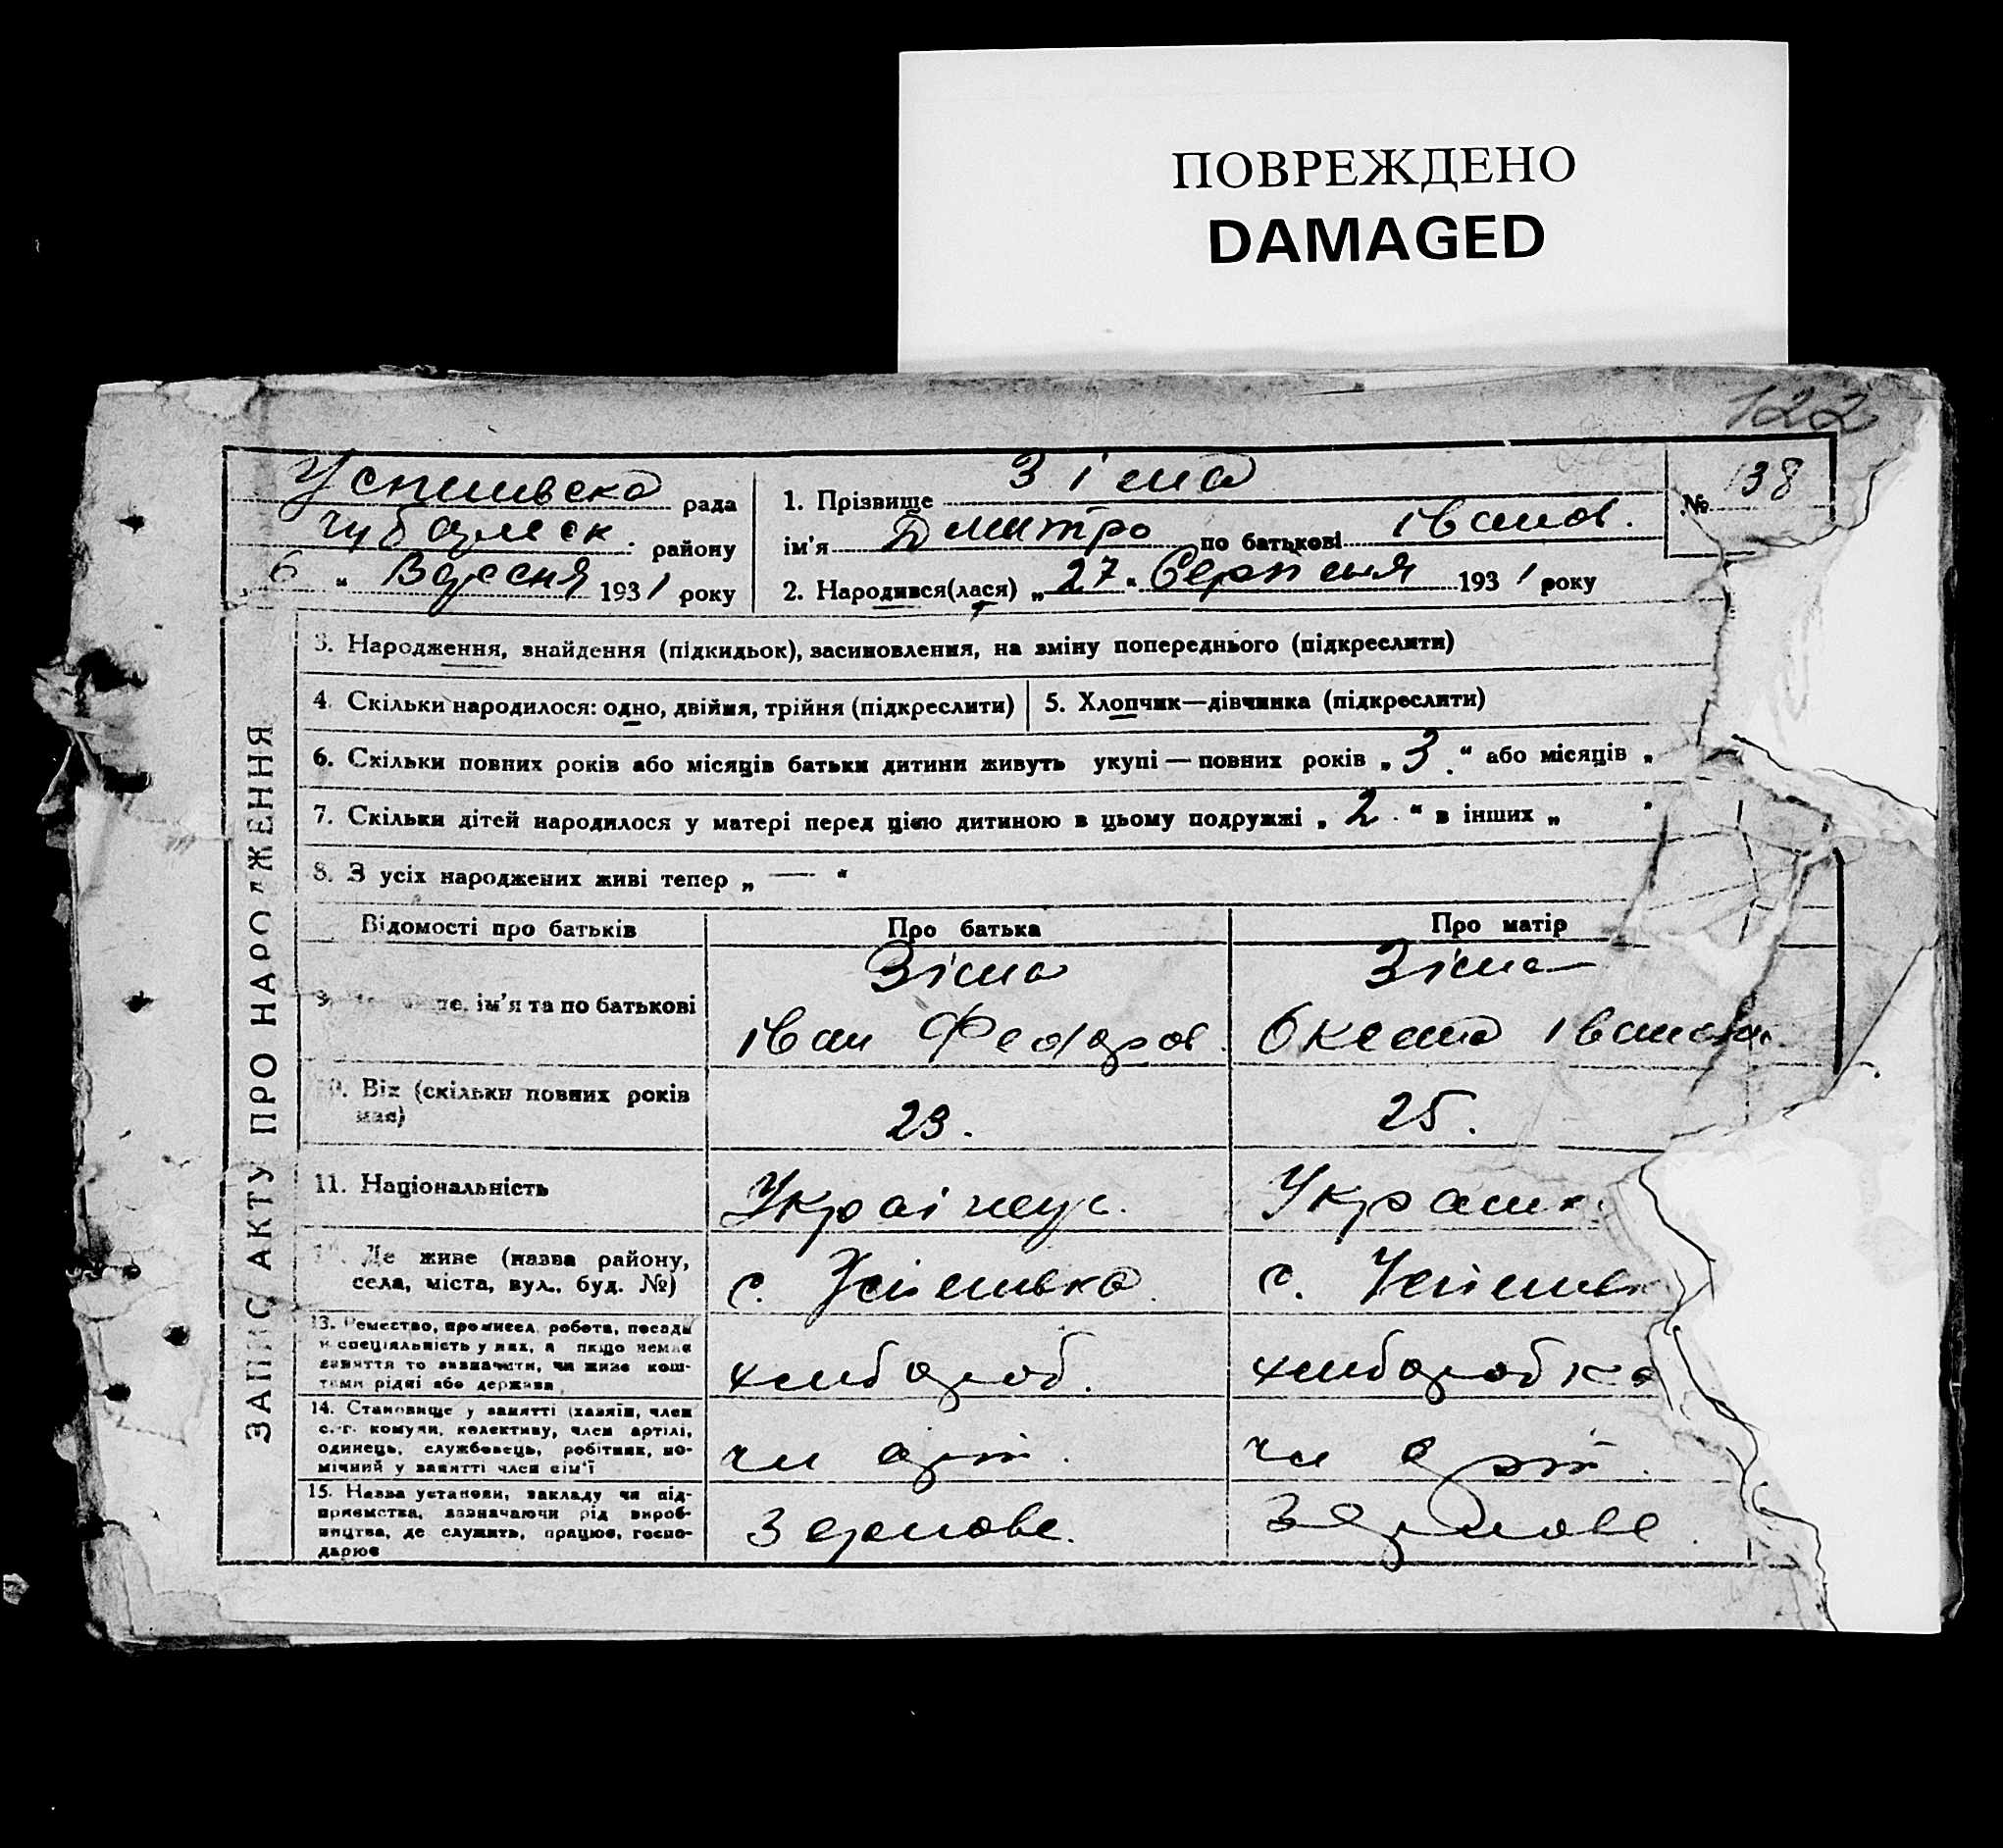 ПОВРЕЖДЕНО
DAMAGED
122
ЗАПИС АКТУ ПРО НАРОДЖЕННЯ
Успенивска рада
Чубарівск. району
6 " Вересня 1931 року
1. Прізвище Зіма
ім'я Дмитро по батькові Іванов.
2. Народився(лася) „27" Серпеня 1931 року
№ 138
3. Народження, знайдення (підкидьок), засиновлення, на зміну попереднього (підкреслити)
4. Скільки народилося: одно, двійня, трійня (підкреслити)
5. Хлопчик—дівчинка (підкреслити)
6. Скільки повних років або місяців батьки дитини живуть укупі — повних років „3." або місяців „
7. Скільки дітей народилося у матері перед цією дитиною в цьому подружжі „2." в інших „ "
8. З усіх народжених живі тепер „ — "
Відомості про батьків
Про батька
Про матір
9. ім'я та по батькові
Зіма
Іван Федоров
Зіма
Оксана Іванов
10. Вік (скільки повних років має)
23.
25.
11. Національність
Українец.
Украин
Де живе (назва району,
села, міста, вул., буд. №)
с. Успенивка
с. Успенивк
13. Ремество, промисел, робота, посада
й спеціяльність у них, а якщо немає
заняття то визначити, чи живе кош-
тами рідні або держава
хлибороб.
хлиборобка
14. Становище у занятті (хазяїн, член
с.-г. комуни, колективу, член артілі,
одинець, службовець, робітник, по-
мічний у занятті член сім'ї
чл арт.
чл арт.
15. Назва установи, закладу чи під-
приємства, зазначаючи рід вироб-
ництва, де служить, працює, госпо-
дарює
Зернове.
Зернове.